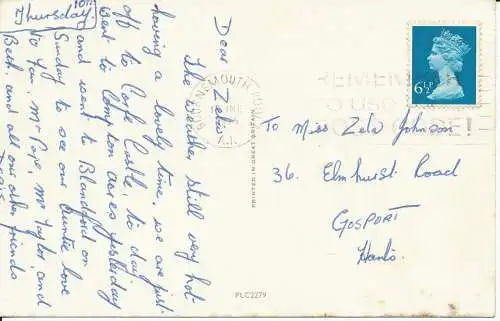 Thursday. 10th
Dear Zela
The weather still very hot
having a lovely time, we are just
off to Corfe Castle, to day,
went to Compton acres yesterday
and went to Blandford on
Sunday to see our Auntie love
to You, Mr Pope, Mr Taylor, and
Beth. and all our other friends
BOURNEMOUTH
JNE
REMEMBER
TO USE
6½P
To Miss Zela Johnson
36. Elmhurst Road
GOSPORT
Hants.
PLC2279